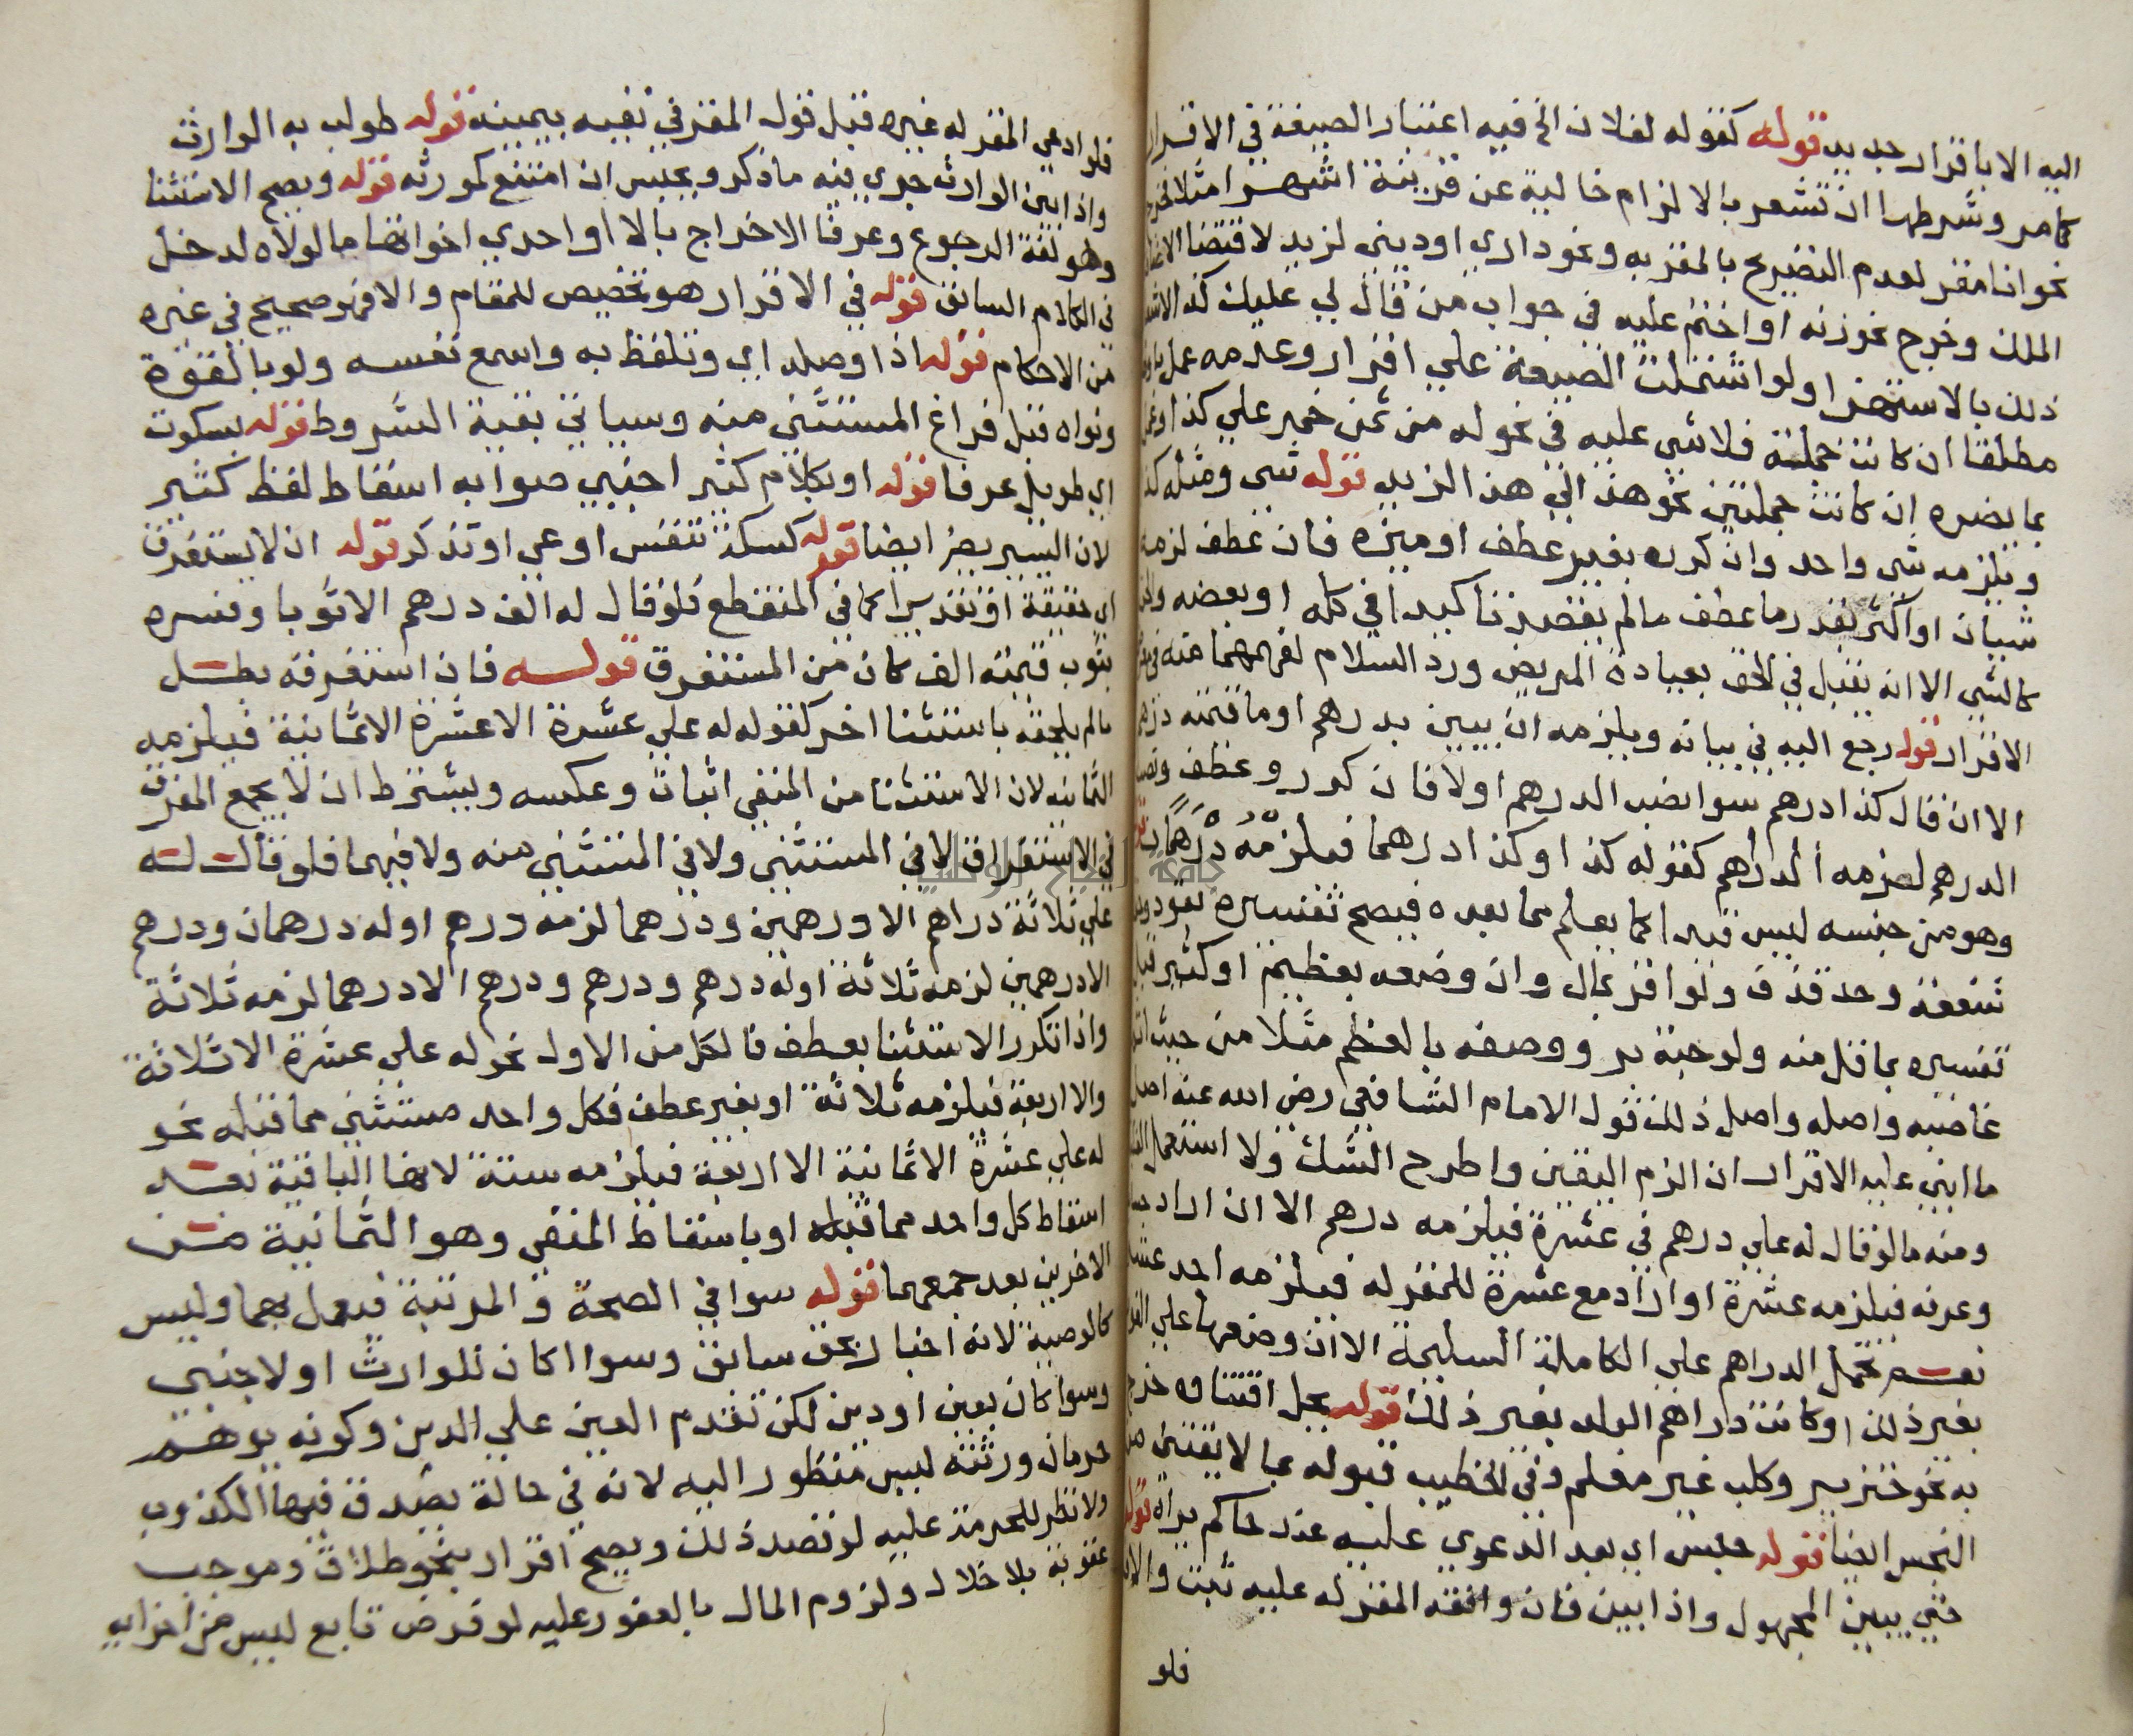 اليه الا باقرار جديد قوله كقوله لفلان الخ فيه اعتبار الصيغة في الاقرار
كما مر وشرطها ان تشعر بالالزام خالية عن قرينة استهزا مثلا فخرج
نحو انا مقر لعدم التصريح بالمقر به ونحو داري او ديني لزيد لاقتضا الاضافة
الملك وخرج نحو زنه او اختم عليه في جواب من قال لي عليك كذا
ذلك بالاستهزا ولو اشتملت الصيغة علي اقرار وعدمه عمل
مطلقا ان كانت جملة فلا شي عليه في نحو له من ثمن خمر علي كذا
بما يضره ان كانت جملتين نحو هذا الي هذا لزيد قوله شي ومثله كذا
ويلزمه شي واحد وان كرره بغير عطف او ميزه فان عطف لزمه
شيان او اكثر بقدر ما عطف مالم يقصد تاكيدا في كله او بعضه
كالشي الا انه يقبل في الحق بعيادة المريض ورد السلام لفهمهما منه في
الاقرار قوله رجع اليه في بيانه ويلزمه ان يبين بدرهم او ما قيمته درهم
الا ان قال كذا درهم سوا نصب الدرهم اولا فان كرر وعطف ونصب
الدرهم لزمه الدراهم كقوله كذا وكذا درهما فيلزمه درهمان
وهو من جنسه ليس قيدا كما يعلم مما بعده فيصح تفسيره بقود
شفعة وحد قذف ولو اقر بمال وان وصفه بعظيم او كثير قبل
تفسيره بما قل منه ولو حبة بر ووصفه بالعظم مثلا من حيث اثم
غاصبه واصله واصل ذلك قول الامام الشافعي رضي الله عنه اصل
ما ابني عليه الاقرار ان الزم اليقين واطرح الشك ولا استعمل
ومنه ما لو قال له علي درهم في عشرة فيلزمه درهم الا ان اراد
وعرفه فيلزمه عشرة او اراد مع عشرة للمقر له فيلزمه احد عشر
نعم تحمل الدراهم علي الكاملة السليمة الا ان وصفها علي الفور
بغير ذلك او كانت دراهم البلد بغير ذلك قوله يحل اقتناوه خرج
به نحو خنزير وكلب غير معلم وفي الخطيب قبوله بما لا يقتني من
النجس ايضا قوله حبس اي بعد الدعوي عليه عند حاكم يراه قوله
حتي يبين المجهول واذا بين فان وافقه المقر له عليه ثبت والا
فلو
فلو ادعي المقر له غيره قبل قول المقر في نفيه بيمينه قوله طولب به الوارث
واذا بين الوارث جري فيه ما ذكر ويحبس ان امتنع كمورثه قوله ويصح الاستثنا
وهو لغة الرجوع وعرفا الاخراج بالا او احدي اخواتها ما لولاه لدخل
في الكلام السابق قوله في الاقرار هو تخصيص للمقام والا فهو صحيح في غيره
من الاحكام قوله اذا وصله اي وتلفظ به واسمع نفسه ولو بالقوة
ونواه قبل فراغ المستثني منه وسياتي بقية الشروط قوله بسكوت
اي طويل عرفا قوله او بكلام كثير اجنبي صوابه اسقاط لفظ كثير
لان اليسير يضر ايضا قوله كسكتة تنفس او عي او تذكر قوله ان لا يستغرق
اي حقيقة او تقديرا كما في المنقطع فلو قال له الف درهم الا ثوبا وفسره
بثوب قيمته الف كان من المستغرق قوله فان استغرقه بطل
مالم يلحقه باستثنا اخر كقوله له علي عشرة الا عشرة الا ثمانية فيلزمه
الثمانيه لان الاستثنا من المنفي اثبات وعكسه ويشترط ان لا يجمع المفرق
في الاستغراق لا في المستثني ولا في المستثني منه ولا فيهما فلو قال له
علي ثلاثة دراهم الا درهمين ودرهما لزمه درهم او له درهمان ودرهم
الا درهمين لزمه ثلاثة او له درهم ودرهم ودرهم الا درهما لزمه ثلاثة
واذا تكرر الاستثنا بعطف فالكل من الاول نحو له علي عشرة الا ثلاثة
والا اربعة فيلزمه ثلاثة او بغير عطف فكل واحد مستثني مما قبله نحو
له علي عشرة الا ثمانية الا اربعة فيلزمه ستة لانها الباقية بعد
اسقاط كل واحد مما قبله او باسقاط المنفي وهو الثمانية من
الاخرين بعد جمعهما قوله سوا في الصحة والمرتبة فيعمل بهما وليس
كالوصية لانه اخبار بحق سابق وسوا اكان للوارث او لاجنبي
وسوا كان بعين او دين لكن تقدم العين علي الدين وكونه يوهم
حرمان ورثته ليس منظورا اليه لانه في حالة يصدق فيها الكذوب
ولا نظر للحرمة عليه لو قصد ذلك ويصح اقراره بنحو طلاق وموجب
عقوبة بلا خلاف ولزوم المال بالعفو عليه لو فرض تابع ليس من اقراره